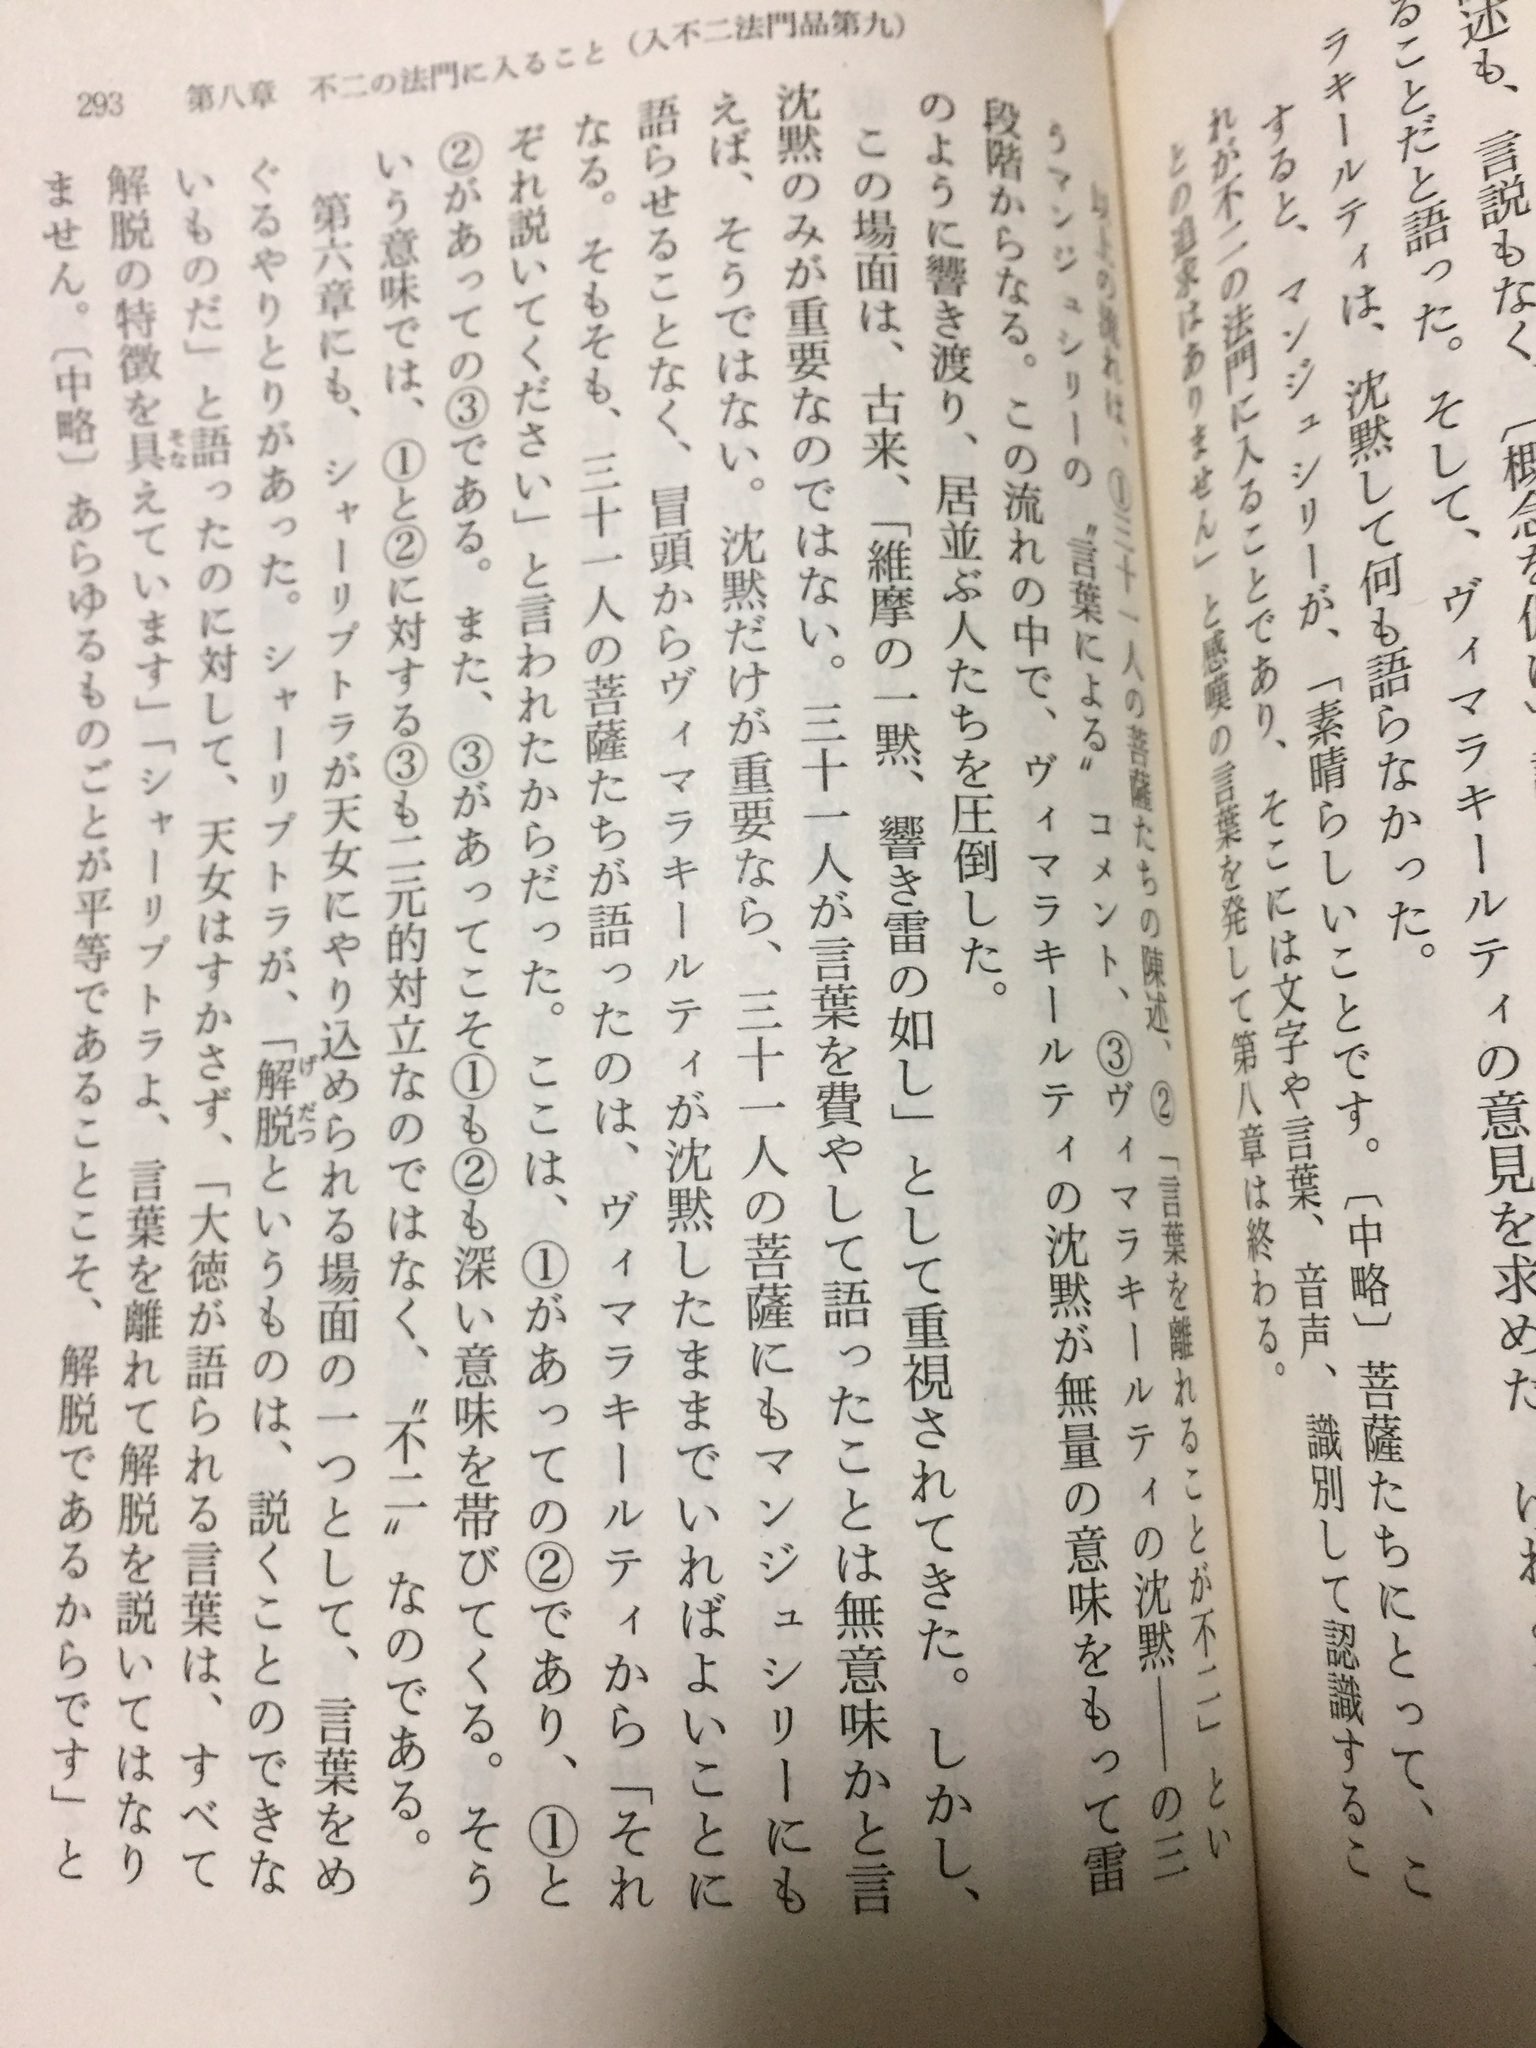 述も、言説もなく、〔概念を
ることだと語った。そして、ヴィマラキールティの意見を求めた
ラキールティは、沈黙して何も語らなかった。
すると、マンジュシリーが、「素晴らしいことです。〔中略〕菩薩たちにとって、こ
れが不二の法門に入ることであり、そこには文字や言葉、音声、識別して認識するこ
との追求はありません」と感嘆の言葉を発して第八章は終わる。
以上の流れは、①三十一人の菩薩たちの陳述、②「言葉を離れることが不二」とい
うマンジュシリーの〝言葉による〟コメント、③ヴィマラキールティの沈黙――の三
段階からなる。この流れの中で、ヴィマラキールティの沈黙が無量の意味をもって雷
のように響き渡り、居並ぶ人たちを圧倒した。
この場面は、古来、「維摩の一黙、響き雷の如し」として重視されてきた。しかし、
沈黙のみが重要なのではない。三十一人が言葉を費やして語ったことは無意味かと言
えば、そうではない。沈黙だけが重要なら、三十一人の菩薩にもマンジュシリーにも
語らせることなく、冒頭からヴィマラキールティが沈黙したままでいればよいことに
なる。そもそも、三十一人の菩薩たちが語ったのは、ヴィマラキールティから「それ
ぞれ説いてください」と言われたからだった。ここは、①があっての②であり、①と
②があっての③である。また、③があってこそ①も②も深い意味を帯びてくる。そう
いう意味では、①と②に対する③も二元的対立なのではなく、〝不二〟なのである。
第六章にも、シャーリプトラが天女にやり込められる場面の一つとして、言葉をめ
ぐるやりとりがあった。シャーリプトラが、「解脱というものは、説くことのできな
いものだ」と語ったのに対して、天女はすかさず、「大徳が語られる言葉は、すべて
解脱の特徴を具えています」「シャーリプトラよ、言葉を離れて解脱を説いてはなり
ません。〔中略〕あらゆるものごとが平等であることこそ、解脱であるからです」と
293　第八章　不二の法門に入ること（入不二法門品第九）